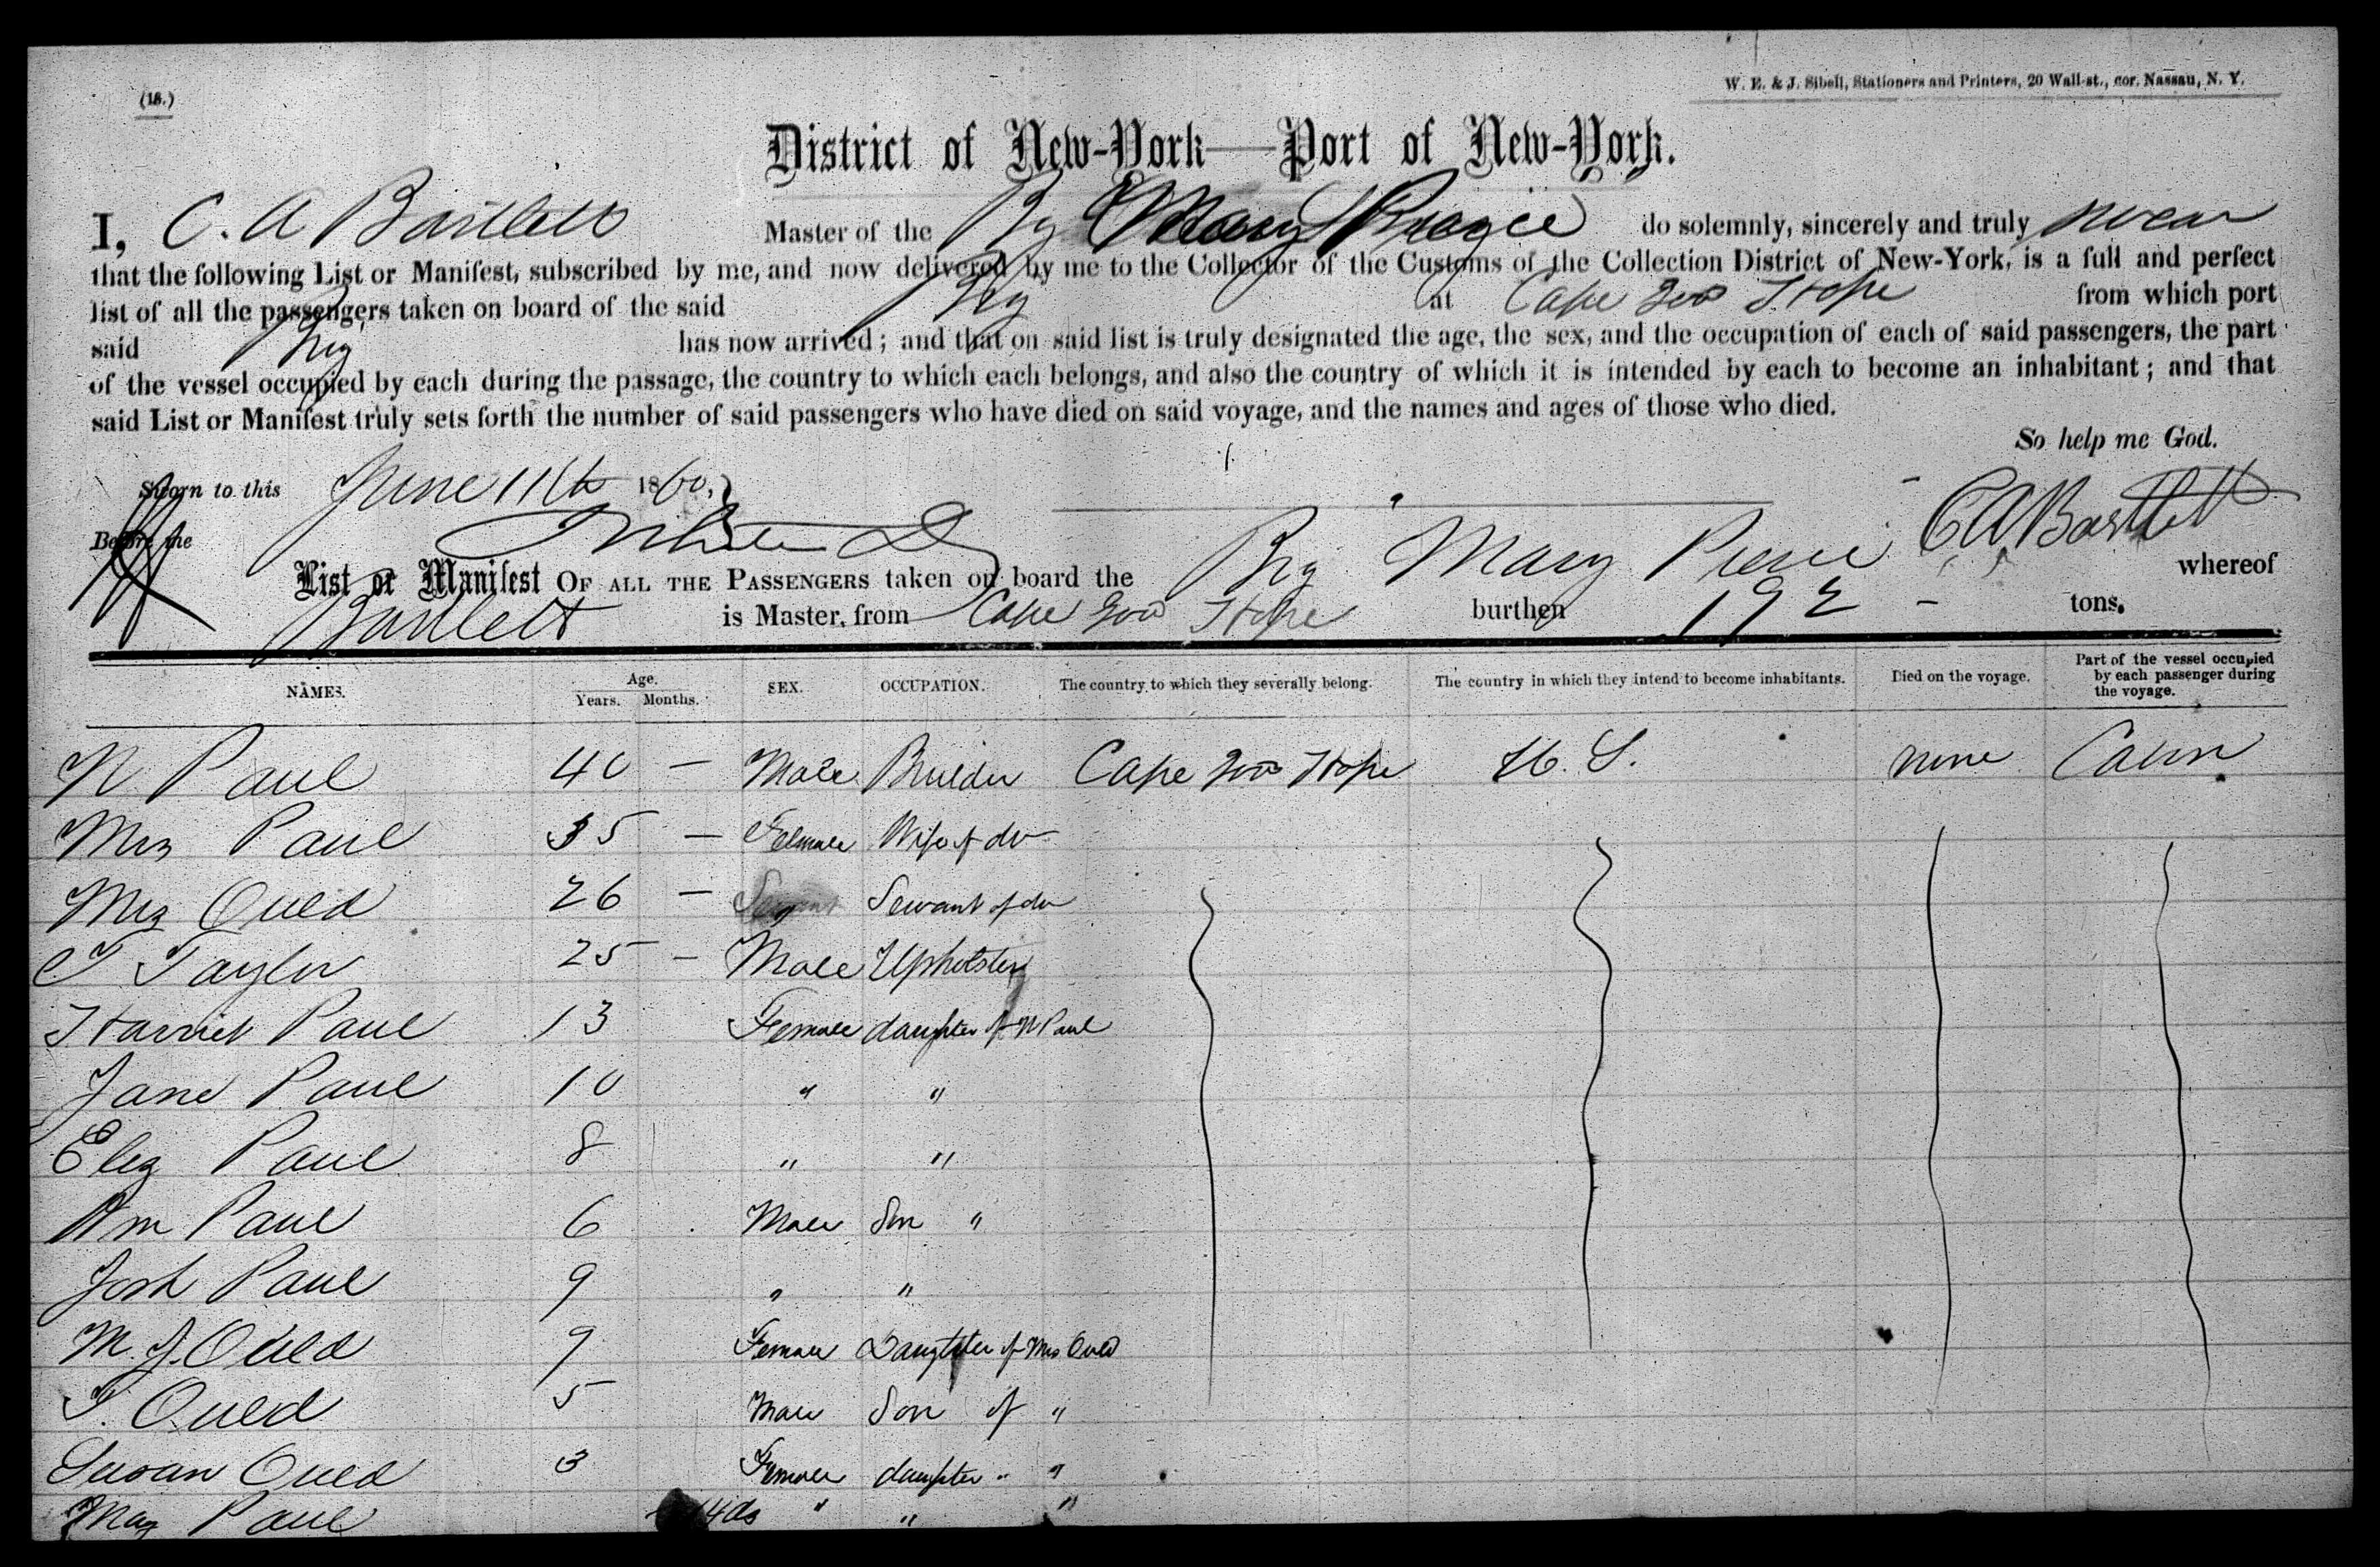 (18.)
W. E. & J. Sibell, Stationers and Printers, 20 Wall-st., cor. Nassau, N. Y.
District of New-York—Port of New-York.
I, C. A Bartlett Master of the Brg Mary Pierce do solemnly, sincerely and truly swear
that the following List or Manifest, subscribed by me, and now delivered by me to the Collector of the Customs of the Collection District of New-York, is a full and perfect
list of all the passengers taken on board of the said Brg at Cape Goo Hope from which port
said Brg has now arrived; and that on said list is truly designated the age, the sex, and the occupation of each of said passengers, the part
of the vessel occupied by each during the passage, the country to which each belongs, and also the country of which it is intended by each to become an inhabitant; and that
said List or Manifest truly sets forth the number of said passengers who have died on said voyage, and the names and ages of those who died.
So help me God.
Sworn to this June 11th 1860.
Before me
C A Bartlett
List or Manifest OF ALL THE PASSENGERS taken on board the Brg Mary Pierce whereof
Bartlett is Master, from Cape Goo Hope burthen 192 - tons.
NAMES. Age. Years. Months. SEX. OCCUPATION. The country to which they severally belong. The country in which they intend to become inhabitants. Died on the voyage. Part of the vessel occupied by each passenger during the voyage.
N Paul 40 — Male Builder Cape Goo Hope U. S. none Cabin
Mrs Paul 35 — Felmale Wife of do
Mrs Ould 26 — Servant of do
T Taylor 25 — Male Upholster
Harriet Paul 13 Female daughter of N Paul
Jane Paul 10 " "
Eliz Paul 8 " "
Wm Paul 6 Male Son "
Josh Paul 9 " "
M. J. Ould 9 Female Daughter of Mrs Ould
T. Ould 5 Male Son of "
Susan Ould 3 Female daughter " "
May Paul 14 ds " " "